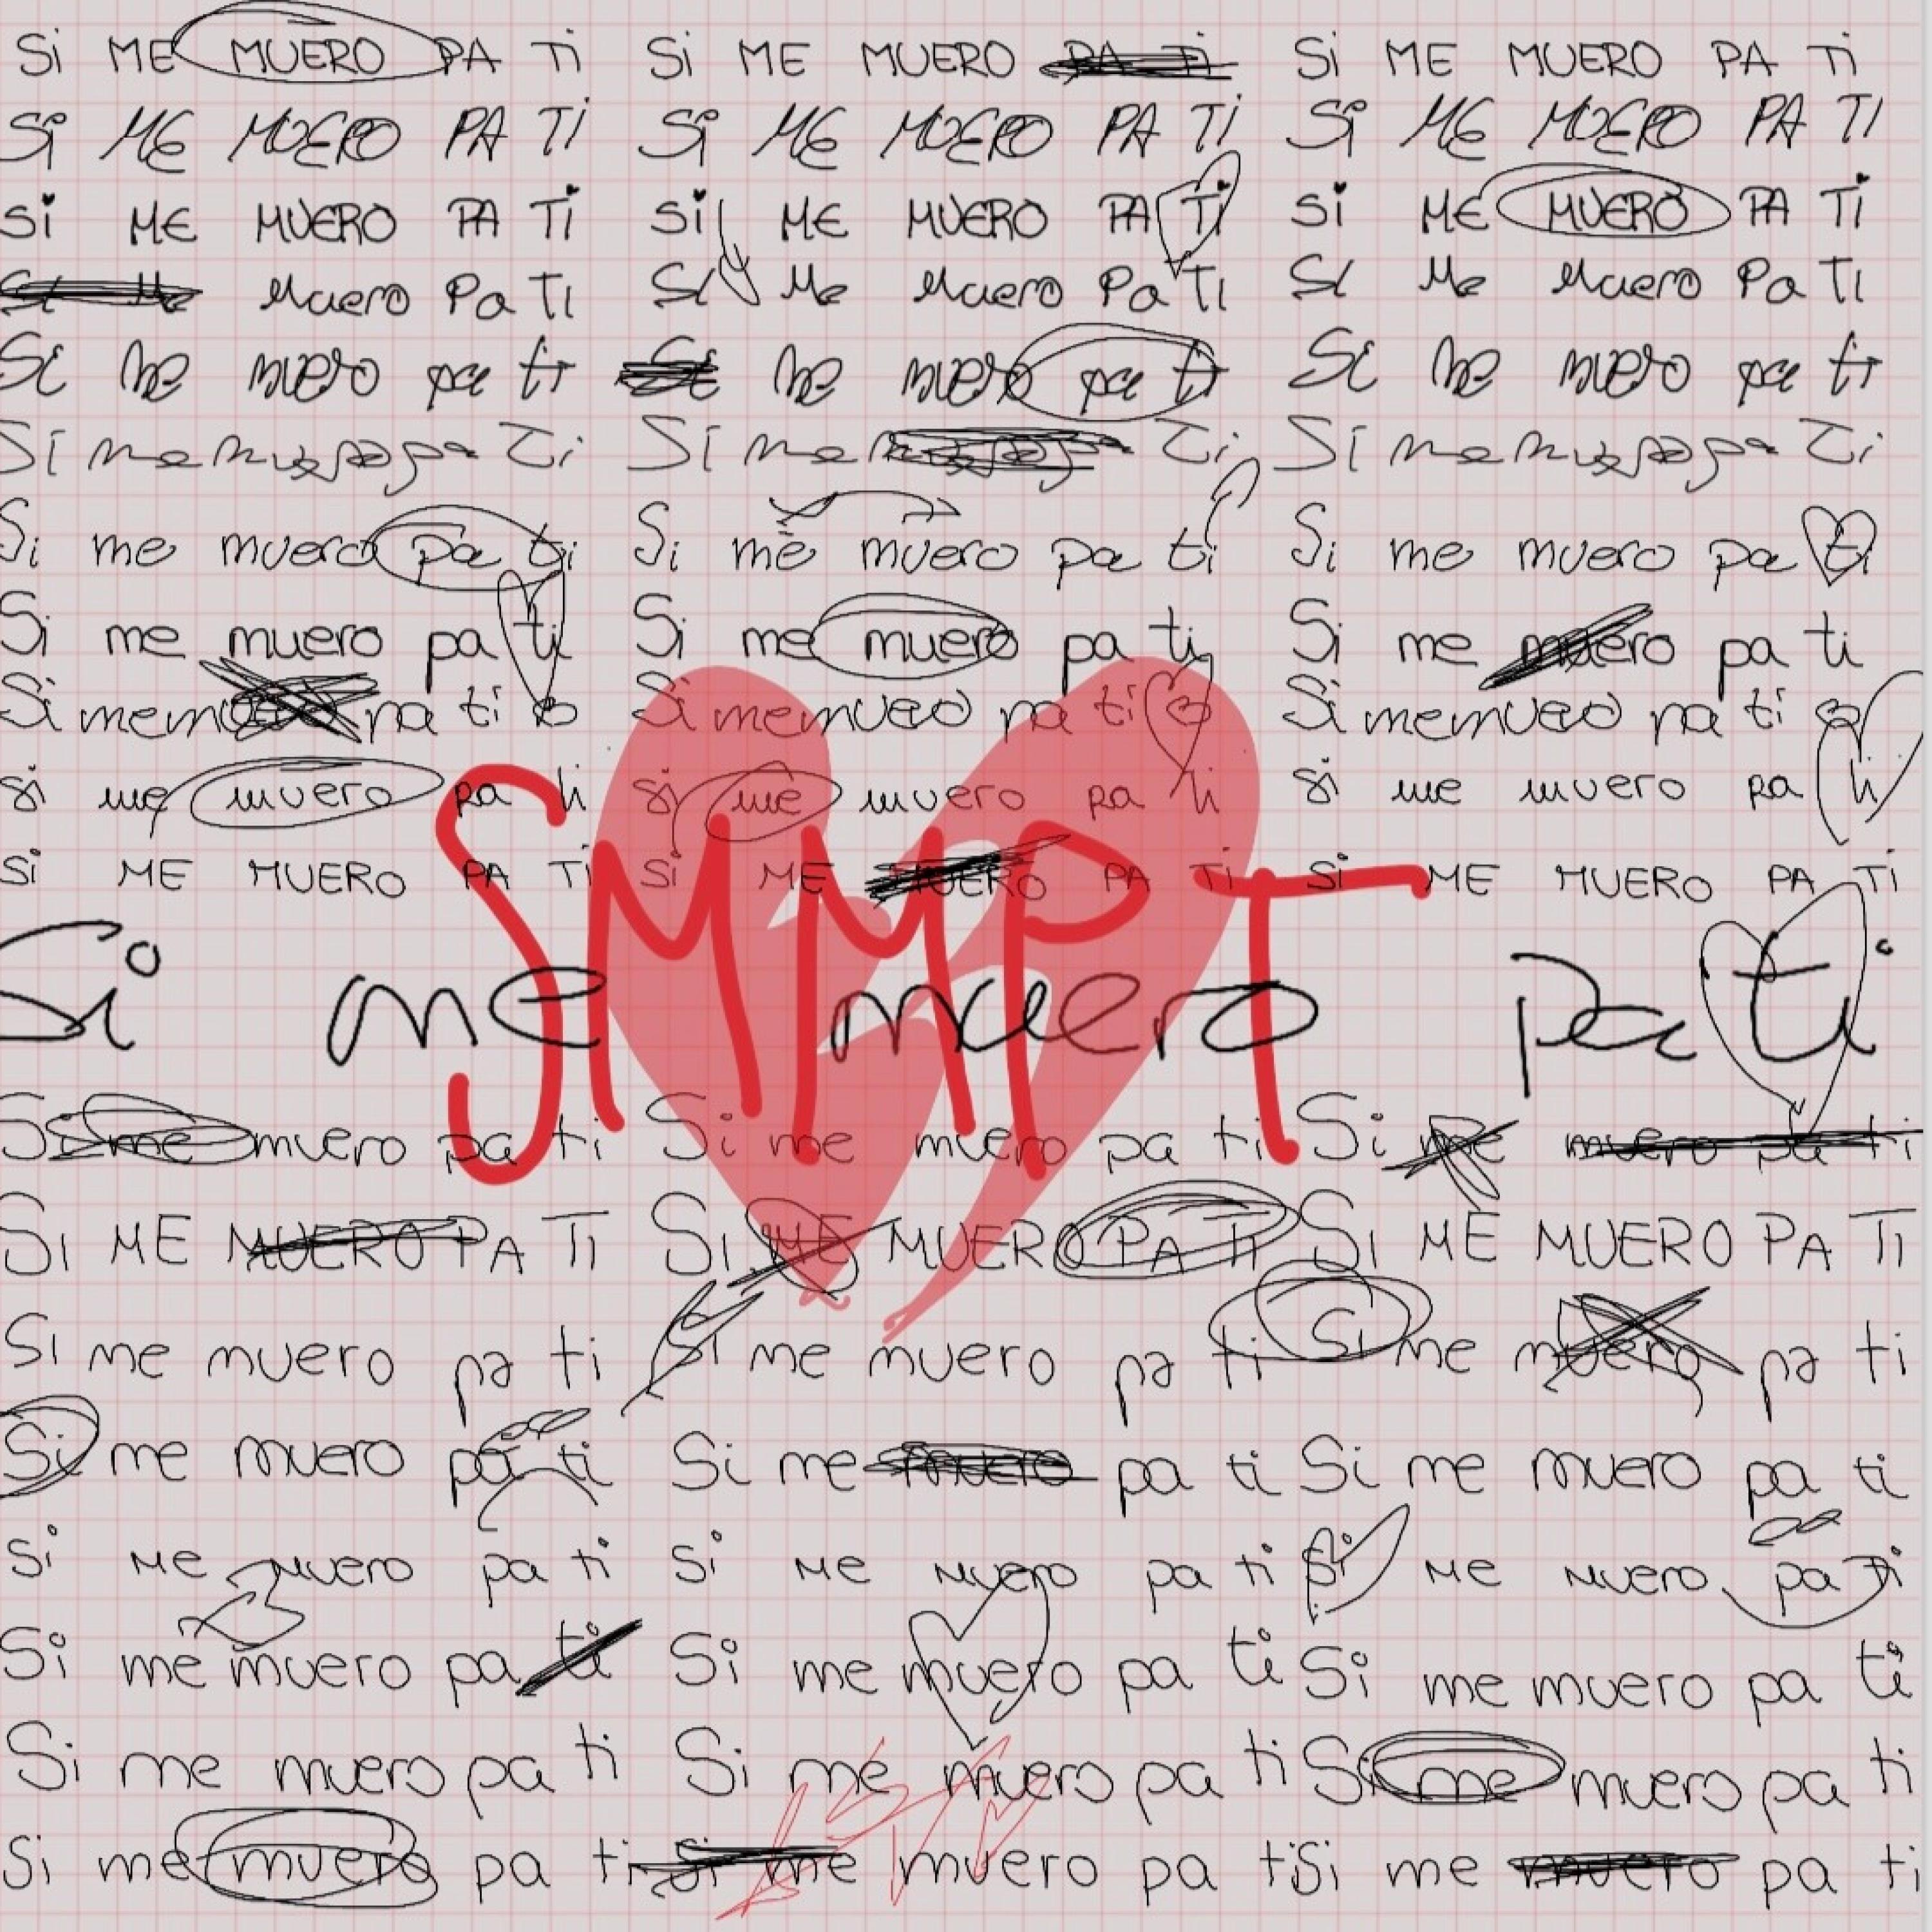 Si ME MUERO PA Ti Si ME MUERO PA Ti Si ME MUERO PA Ti
Si ME MUERO PA Ti Si ME MUERO PA Ti Si ME MUERO PA TI
Si ME MUERO PA Ti Si ME MUERO PA Ti Si ME MUERO PA Ti
SI Me Muero Pa TI SI Me Muero Pa TI SI Me Muero Pa TI
Si me muero pa ti Si me muero pa ti Si me muero pa ti
Si me muero pa Ti Si me muero pa Ti Si me muero pa Ti
Si me muero pa ti Si me muero pa ti Si me muero pa ti
Si me muero pa ti Si me muero pa ti Si me muero pa ti
Si me muero pa ti Si me muero pa ti Si me muero pa ti
si me muero pa ti si me muero pa ti si me muero pa ti
Si ME MUERO PA Ti Si ME MUERO PA Ti Si ME MUERO PA Ti
SMMPT
Si me muero pa ti
Si me muero pa ti Si me muero pa ti Si me muero pa ti
SI ME MUERO PA TI SI ME MUERO PA TI SI ME MUERO PA TI
SI me muero pa ti SI me muero pa ti SI me muero pa ti
Si me muero pa ti Si me muero pa ti Si me muero pa ti
Si Me Muero pa ti Si Me Muero pa ti Si Me Muero pa ti
Si me muero pa ti Si me muero pa ti Si me muero pa ti
Si me muero pa ti Si me muero pa ti Si me muero pa ti
Si me muero pa ti Si me muero pa ti Si me muero pa ti